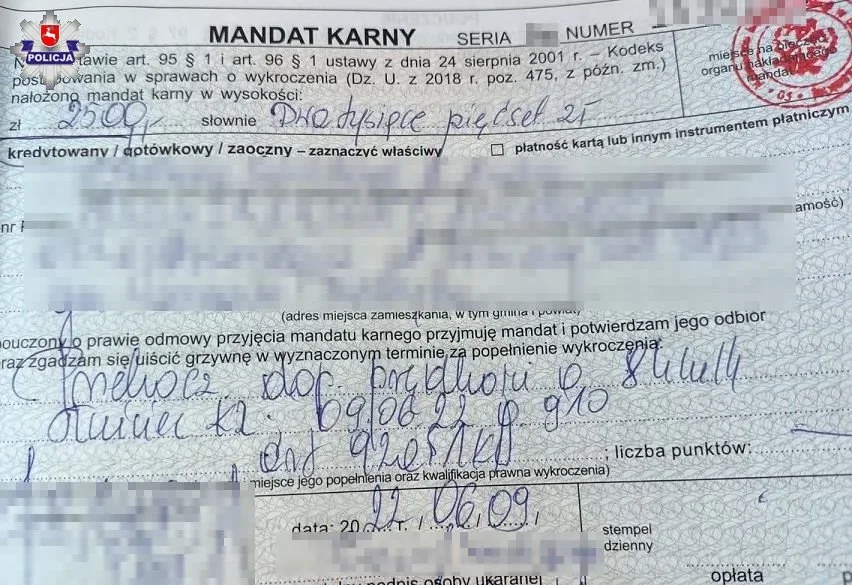 POLICJA
MANDAT KARNY SERIA NUMER
art. 95 § 1 i art. 96 § 1 ustawy z dnia 24 sierpnia 2001 r. – Kodeks
postępowania w sprawach o wykroczenia (Dz. U. z 2018 r. poz. 475, z późn. zm.)
nałożono mandat karny w wysokości:
miejsce na
organu
mandat
zł 2500,- słownie Dwa tysiące pięćset zł
kredytowany / gotówkowy / zaoczny – zaznaczyć właściwy
płatność kartą lub innym instrumentem płatniczym
nr
amość)
(adres miejsca zamieszkania, w tym gmina i powiat)
ouczony o prawie odmowy przyjęcia mandatu karnego przyjmuję mandat i potwierdzam jego odbiór
raz zgadzam się uiścić grzywnę w wyznaczonym terminie za popełnienie wykroczenia:
dop. prędkości o
09.06.22 910
; liczba punktów:
miejsce jego popełnienia oraz kwalifikacja prawna wykroczenia)
data: 2022 r. / 06.09.
stempel
dzienny
podpis osoby ukaranej
opłata